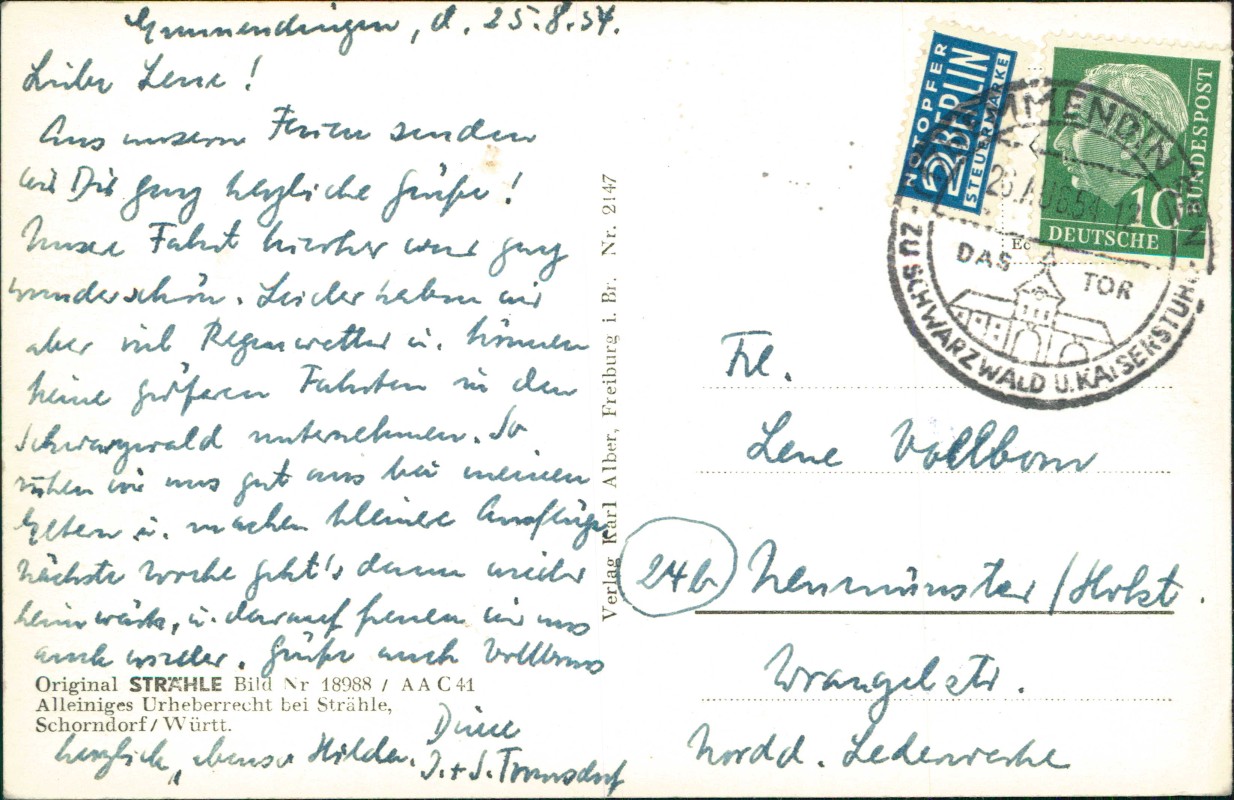 Emmendingen, d. 25.8.54.
Liebe Lene!
Aus unsern Ferien senden
wir Dir ganz herzliche Grüße!
Unsere Fahrt hierher war ganz
wunderschön. Leider haben wir
aber viel Regenwetter u. können
keine größeren Fahrten in den
Schwarzwald unternehmen. So
ruhen wir uns gut aus bei meinen
Eltern u. machen kleinere Ausflüge.
Nächste Woche geht's dann wieder
heimwärts, u. darauf freuen wir uns
auch wieder. Grüße auch Vollborns
herzlich, ebenso Hilde. Deine
J. + J. Trom̅sdorf
Original STRÄHLE Bild Nr 18988 / A A C 41
Alleiniges Urheberrecht bei Strähle,
Schorndorf/Württ.
Verlag Karl Alber, Freiburg i. Br. Nr. 2147
NOTOPFER
2 BERLIN
STEUERMARKE
DEUTSCHE
BUNDESPOST
10
EMMENDINGEN
26.AUG.54.-12
DAS TOR
ZU SCHWARZWALD U. KAISERSTUHL
Frl.
Lene Vollborn
24b Neumünster/Holst.
Wrangelstr.
Nordd. Lederwerke